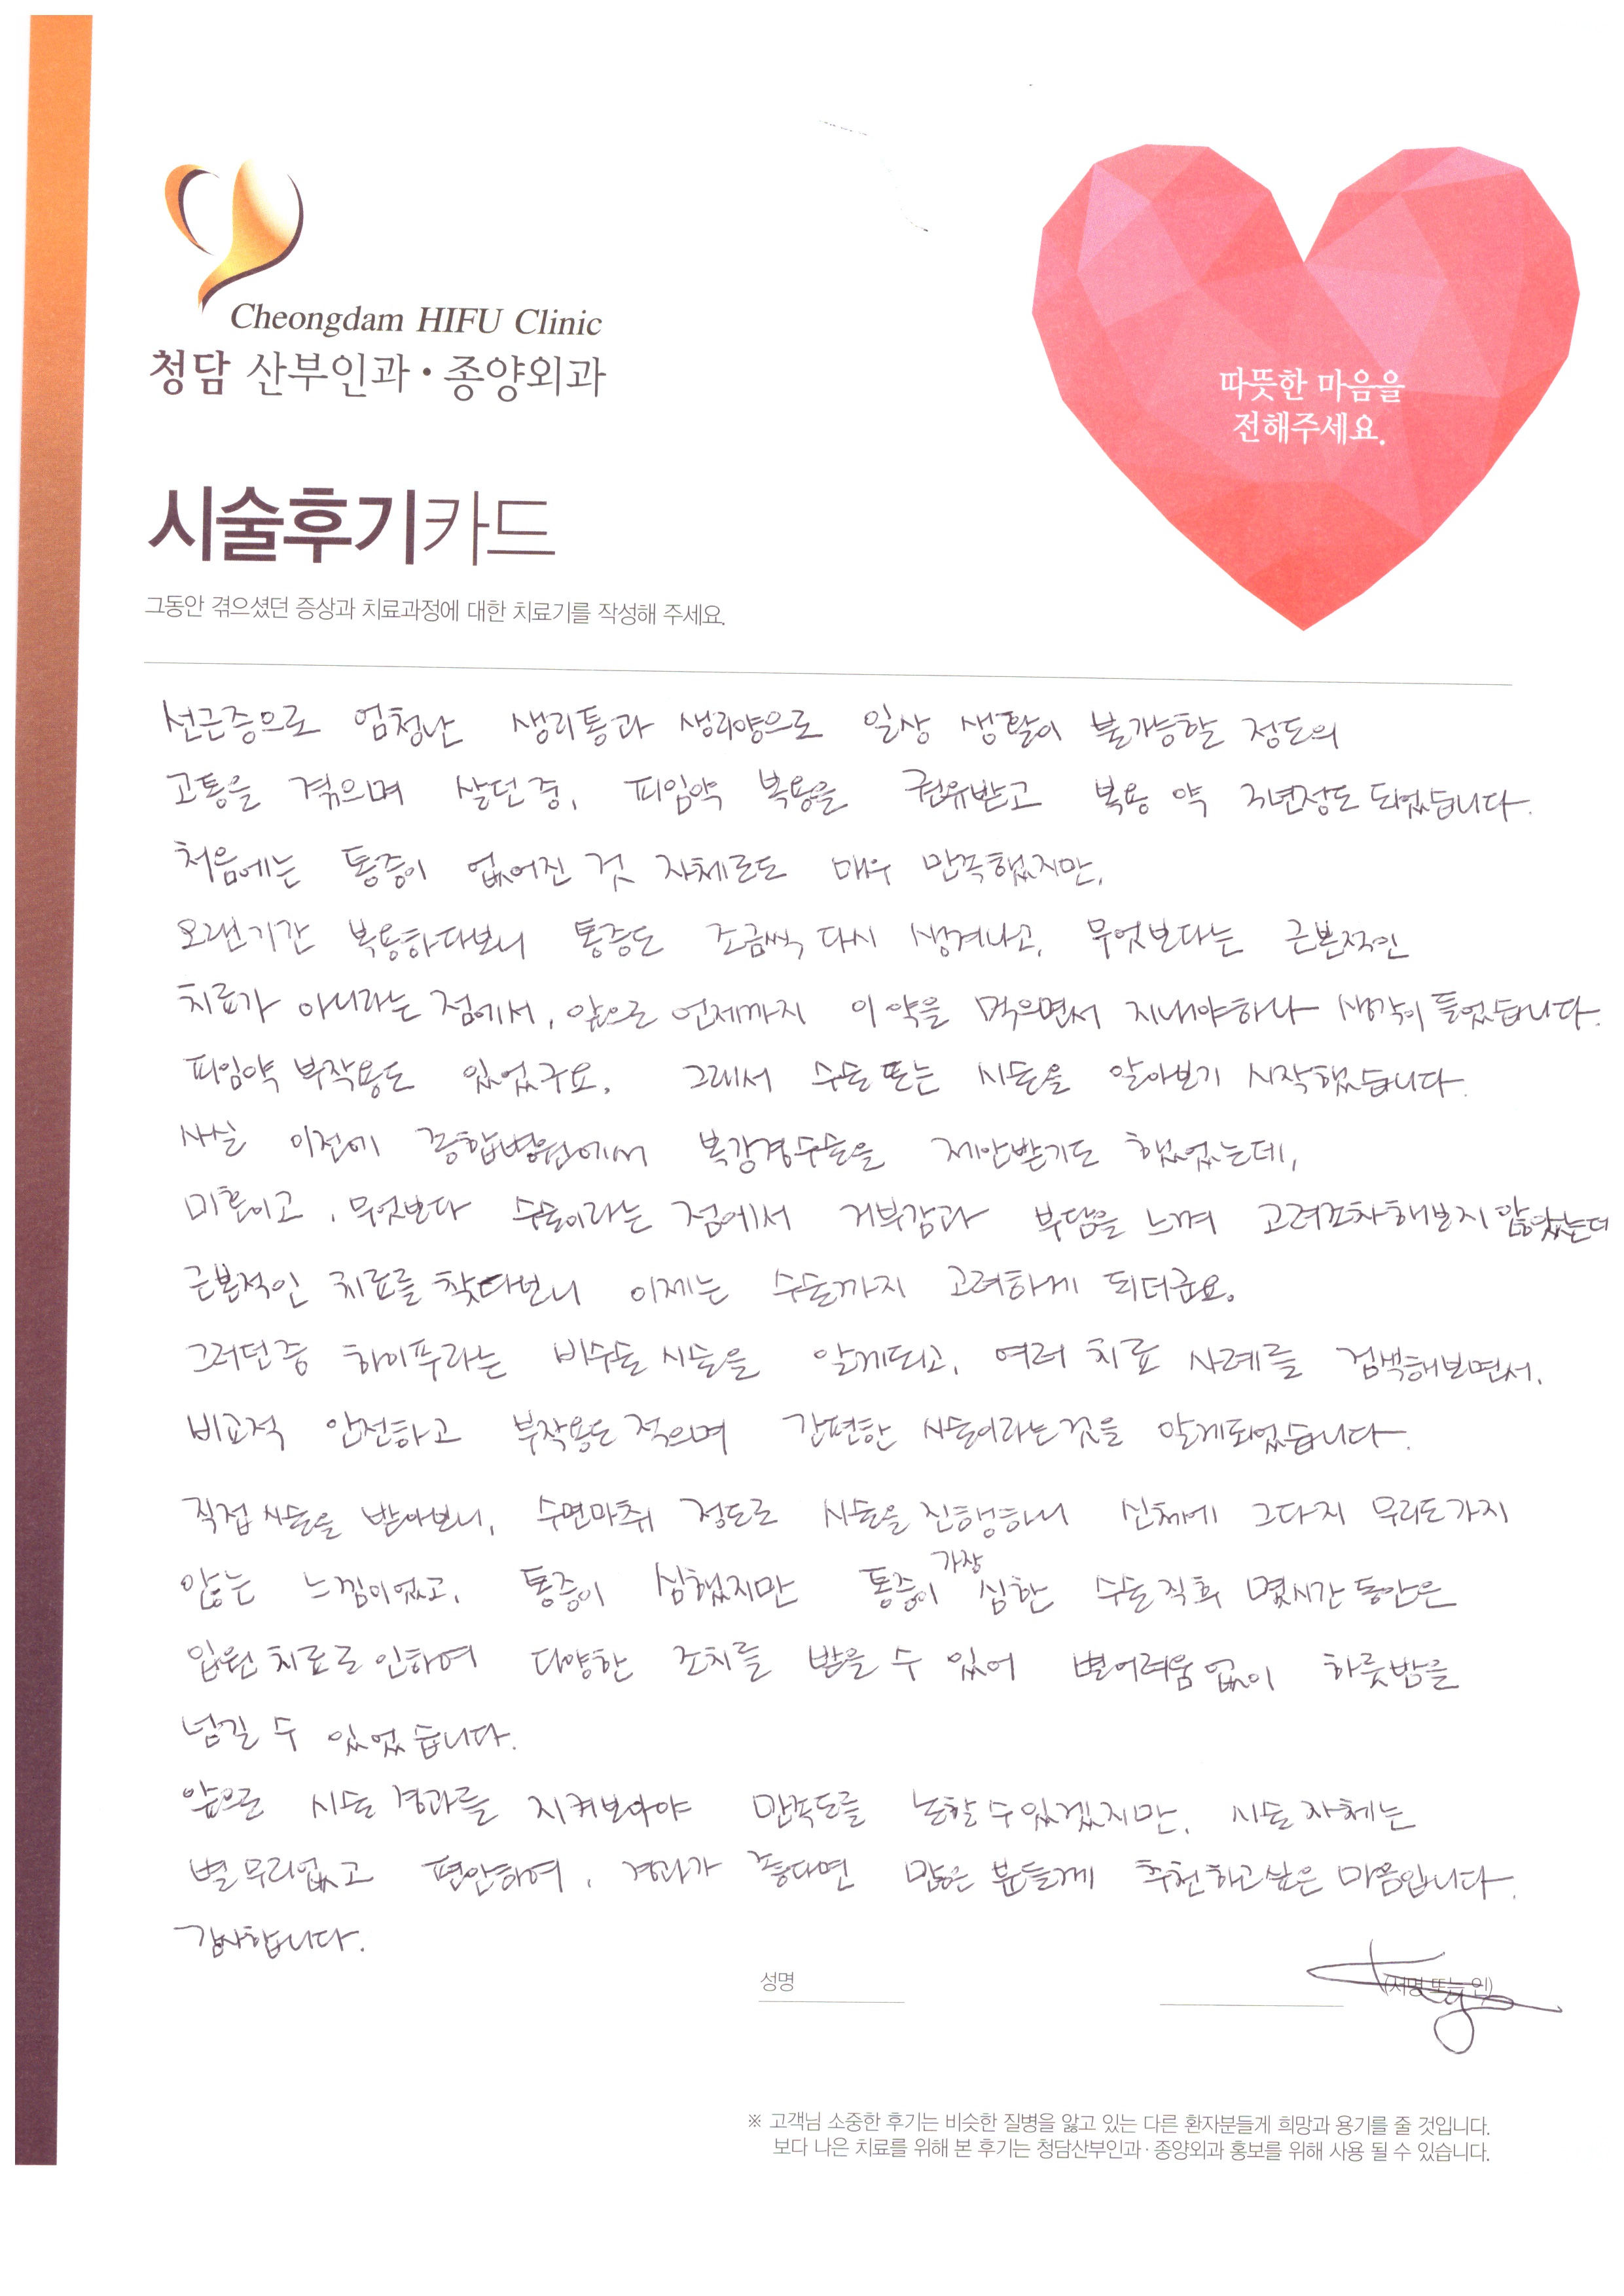 Cheongdam HIFU Clinic
청담 산부인과·종양외과
따뜻한 마음을
전해주세요.
시술후기카드
그동안 겪으셨던 증상과 치료과정에 대한 치료기를 작성해 주세요.
선근증으로 엄청난 생리통과 생리양으로 일상 생활이 불가능할 정도의
고통을 겪으며 살던 중, 피임약 복용을 권유받고 복용 약 3년정도 되었습니다.
처음에는 통증이 없어진 것 자체로도 매우 만족했지만,
오랜기간 복용하다보니 통증도 조금씩 다시 생겨나고, 무엇보다는 근본적인
치료가 아니라는 점에서, 앞으로 언제까지 이 약을 먹으면서 지내야하나 생각이 들었습니다.
피임약 부작용도 있었구요. 그래서 수술 또는 시술을 알아보기 시작했습니다.
사실 이전에 종합병원에서 복강경수술을 제안받기도 했었는데,
미혼이고, 무엇보다 수술이라는 점에서 거부감과 부담을 느껴 고려조차해보지 않았는데
근본적인 치료를 찾다보니 이제는 수술까지 고려하게 되더군요.
그러던중 하이푸라는 비수술 시술을 알게되고, 여러 치료 사례를 검색해보면서,
비교적 안전하고 부작용도 적으며 간편한 시술이라는것을 알게되었습니다.
직접 시술을 받아보니, 수면마취 정도로 시술을 진행하니 신체에 그다지 무리도가지
않는 느낌이었고, 통증이 심했지만 통증이 가장 심한 수술직후 몇시간 동안은
입원 치료로 인하여 다양한 조치를 받을 수 있어 별어려움 없이 하룻밤을
넘길 수 있었습니다.
앞으로 시술 경과를 지켜보아야 만족도를 논할 수 있겠지만, 시술 자체는
별 무리없고 편안하여, 경과가 좋다면 많은 분들께 추천하고싶은 마음입니다.
감사합니다.
성명 (서명 또는 인)
※ 고객님 소중한 후기는 비슷한 질병을 앓고 있는 다른 환자분들게 희망과 용기를 줄 것입니다.
보다 나은 치료를 위해 본 후기는 청담산부인과·종양외과 홍보를 위해 사용 될 수 있습니다.